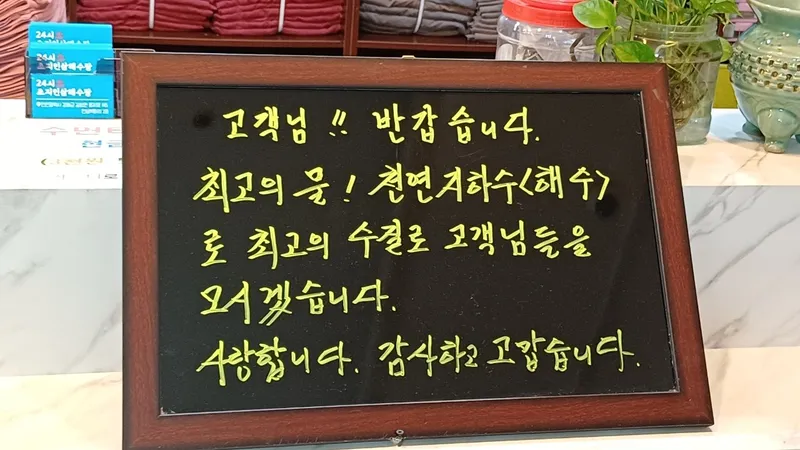 24시
24시
24시
초지인삼해수팜
고객님 !! 반갑습니다.
최고의 물! 천연지하수<해수>
로 최고의 수질로 고객님들을
모시겠습니다.
사랑합니다. 감사하고 고맙습니다.